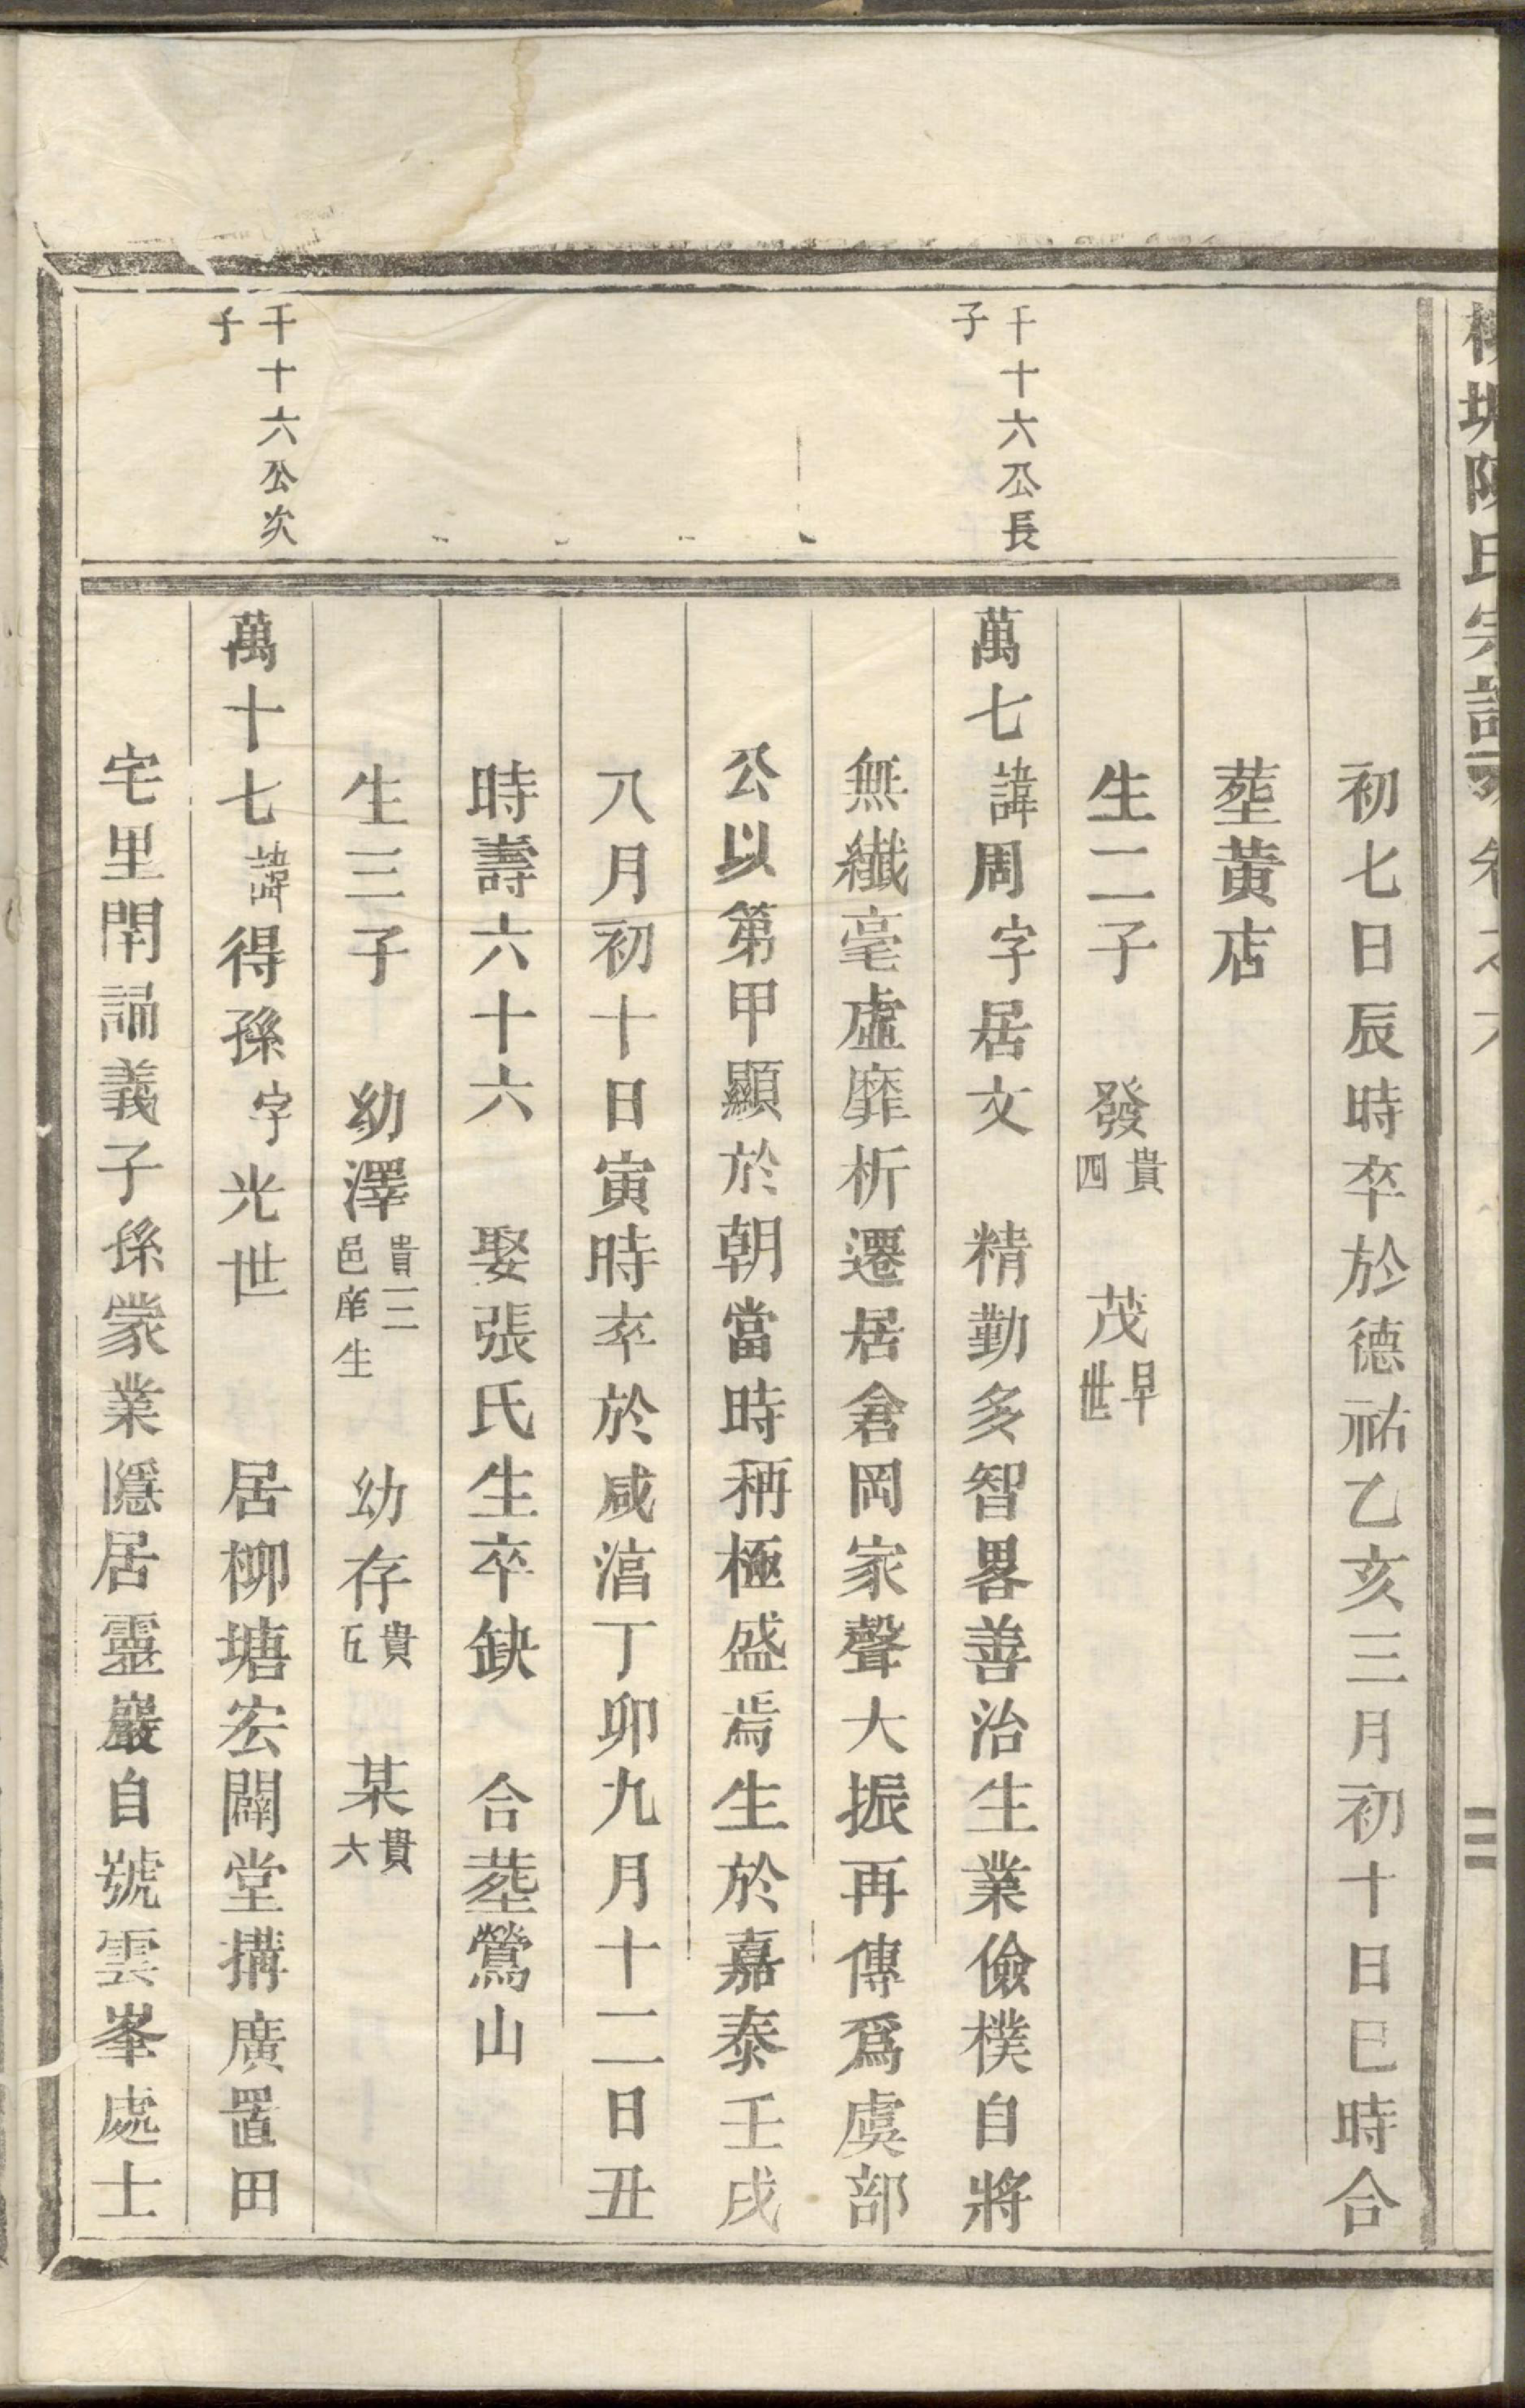 陳氏宗譜 卷之六
初七日辰時卒於德祐乙亥三月初十日巳時合
塟黄店
生二子 發貴四 茂早世
千十六公長子
萬七諱周字居文 精勤多智畧善治生業儉樸自將
無纎毫虛靡析遷居倉岡家聲大振再傳爲虞部
公以第甲顯於朝當時稱極盛焉生於嘉泰壬戌
八月初十日寅時卒於咸淳丁卯九月十二日丑
時壽六十六 娶張氏生卒缺 合塟鶯山
生三子 幼澤貴二邑庠生 幼存貴五 某貴六
千十六公次子
萬十七諱得孫字光世 居柳塘宏闢堂搆廣置田
宅里閈誦義子孫蒙業隱居靈巖自號雲峯處士